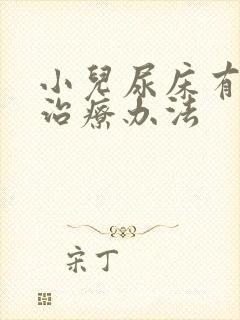 小兒尿床有
治療办法
宋丁